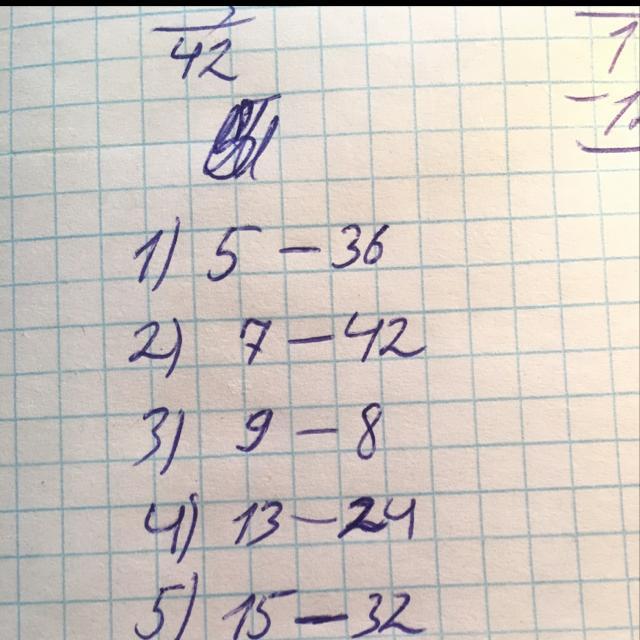 42
1) 5 – 36
2) 7 – 42
3) 9 – 8
4) 13 – 24
5) 15 – 32